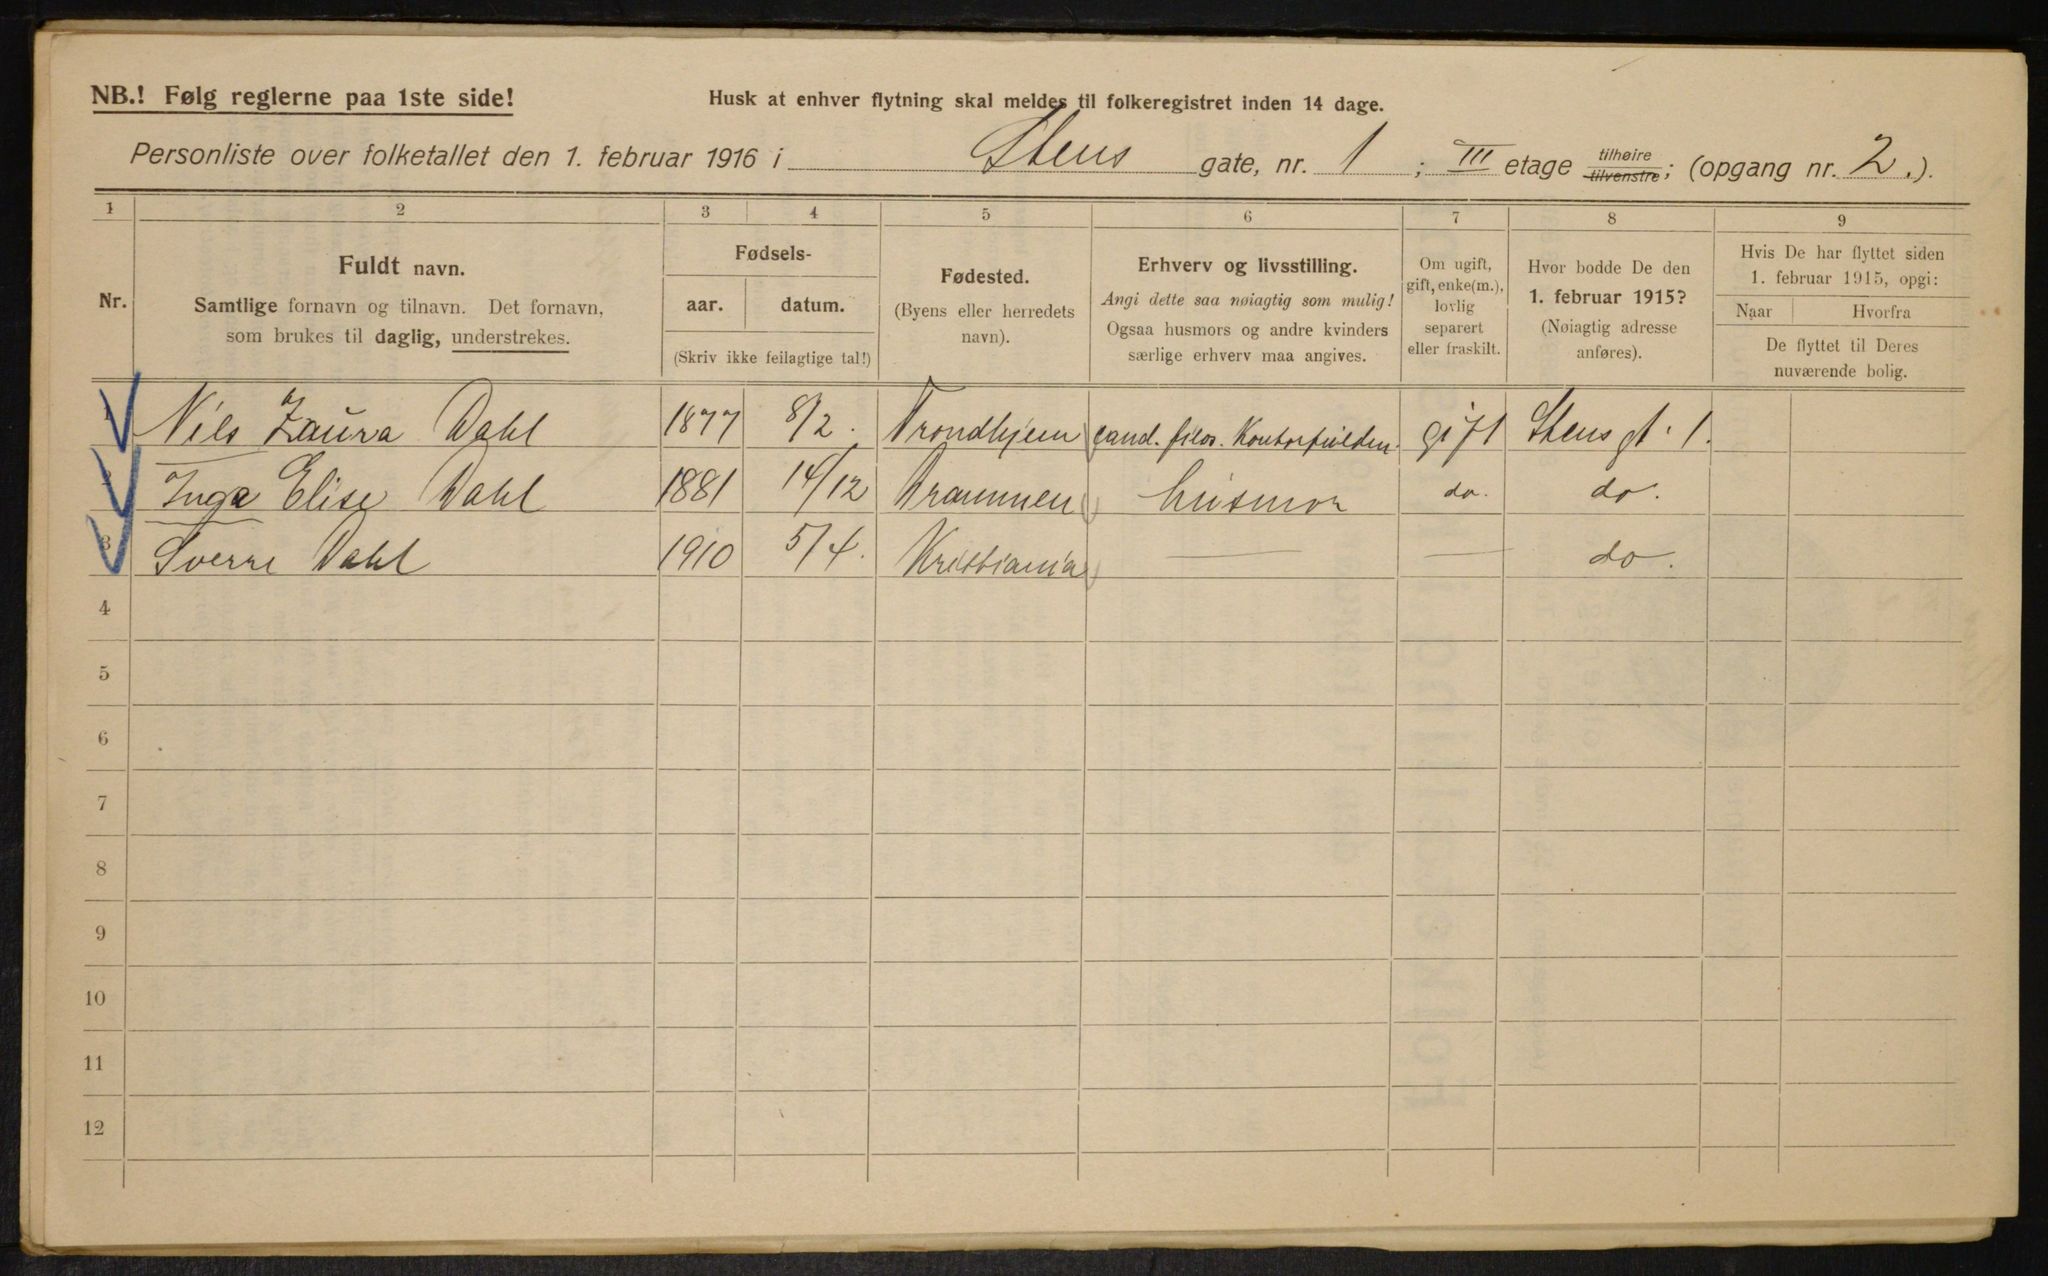 NB.! Følg reglerne paa 1ste side!
Husk at enhver flytning skal meldes til folkeregistret inden 14 dage.
Personliste over folketallet den 1. februar 1916 i Stens gate, nr. 1 ; III etage tilhøire tilvenstre; (opgang nr. 2.).
1 2 3 4 5 6 7 8 9
Nr.
Fuldt navn.
Samtlige fornavn og tilnavn. Det fornavn,
som brukes til daglig, understrekes.
Fødsels-
aar. datum.
(Skriv ikke feilagtige tal!)
Fødested.
(Byens eller herredets
navn).
Erhverv og livsstilling.
Angi dette saa nøiagtig som mulig!
Ogsaa husmors og andre kvinders
særlige erhverv maa angives.
Om ugift,
gift, enke(m.),
lovlig
separert
eller fraskilt.
Hvor bodde De den
1. februar 1915?
(Nøiagtig adresse
anføres).
Hvis De har flyttet siden
1. februar 1915, opgi:
Naar Hvorfra
De flyttet til Deres
nuværende bolig.
1 Nils Zaura Dahl 1877 8/2. Trondhjem cand. filos. Kontorfuldm. gift Stens gt. 1.
2 Inga Elise Dahl 1881 14/12 Drammen husmor do. do.
3 Sverre Dahl 1910 5/4. Kristiania — — do.
4
5
6
7
8
9
10
11
12